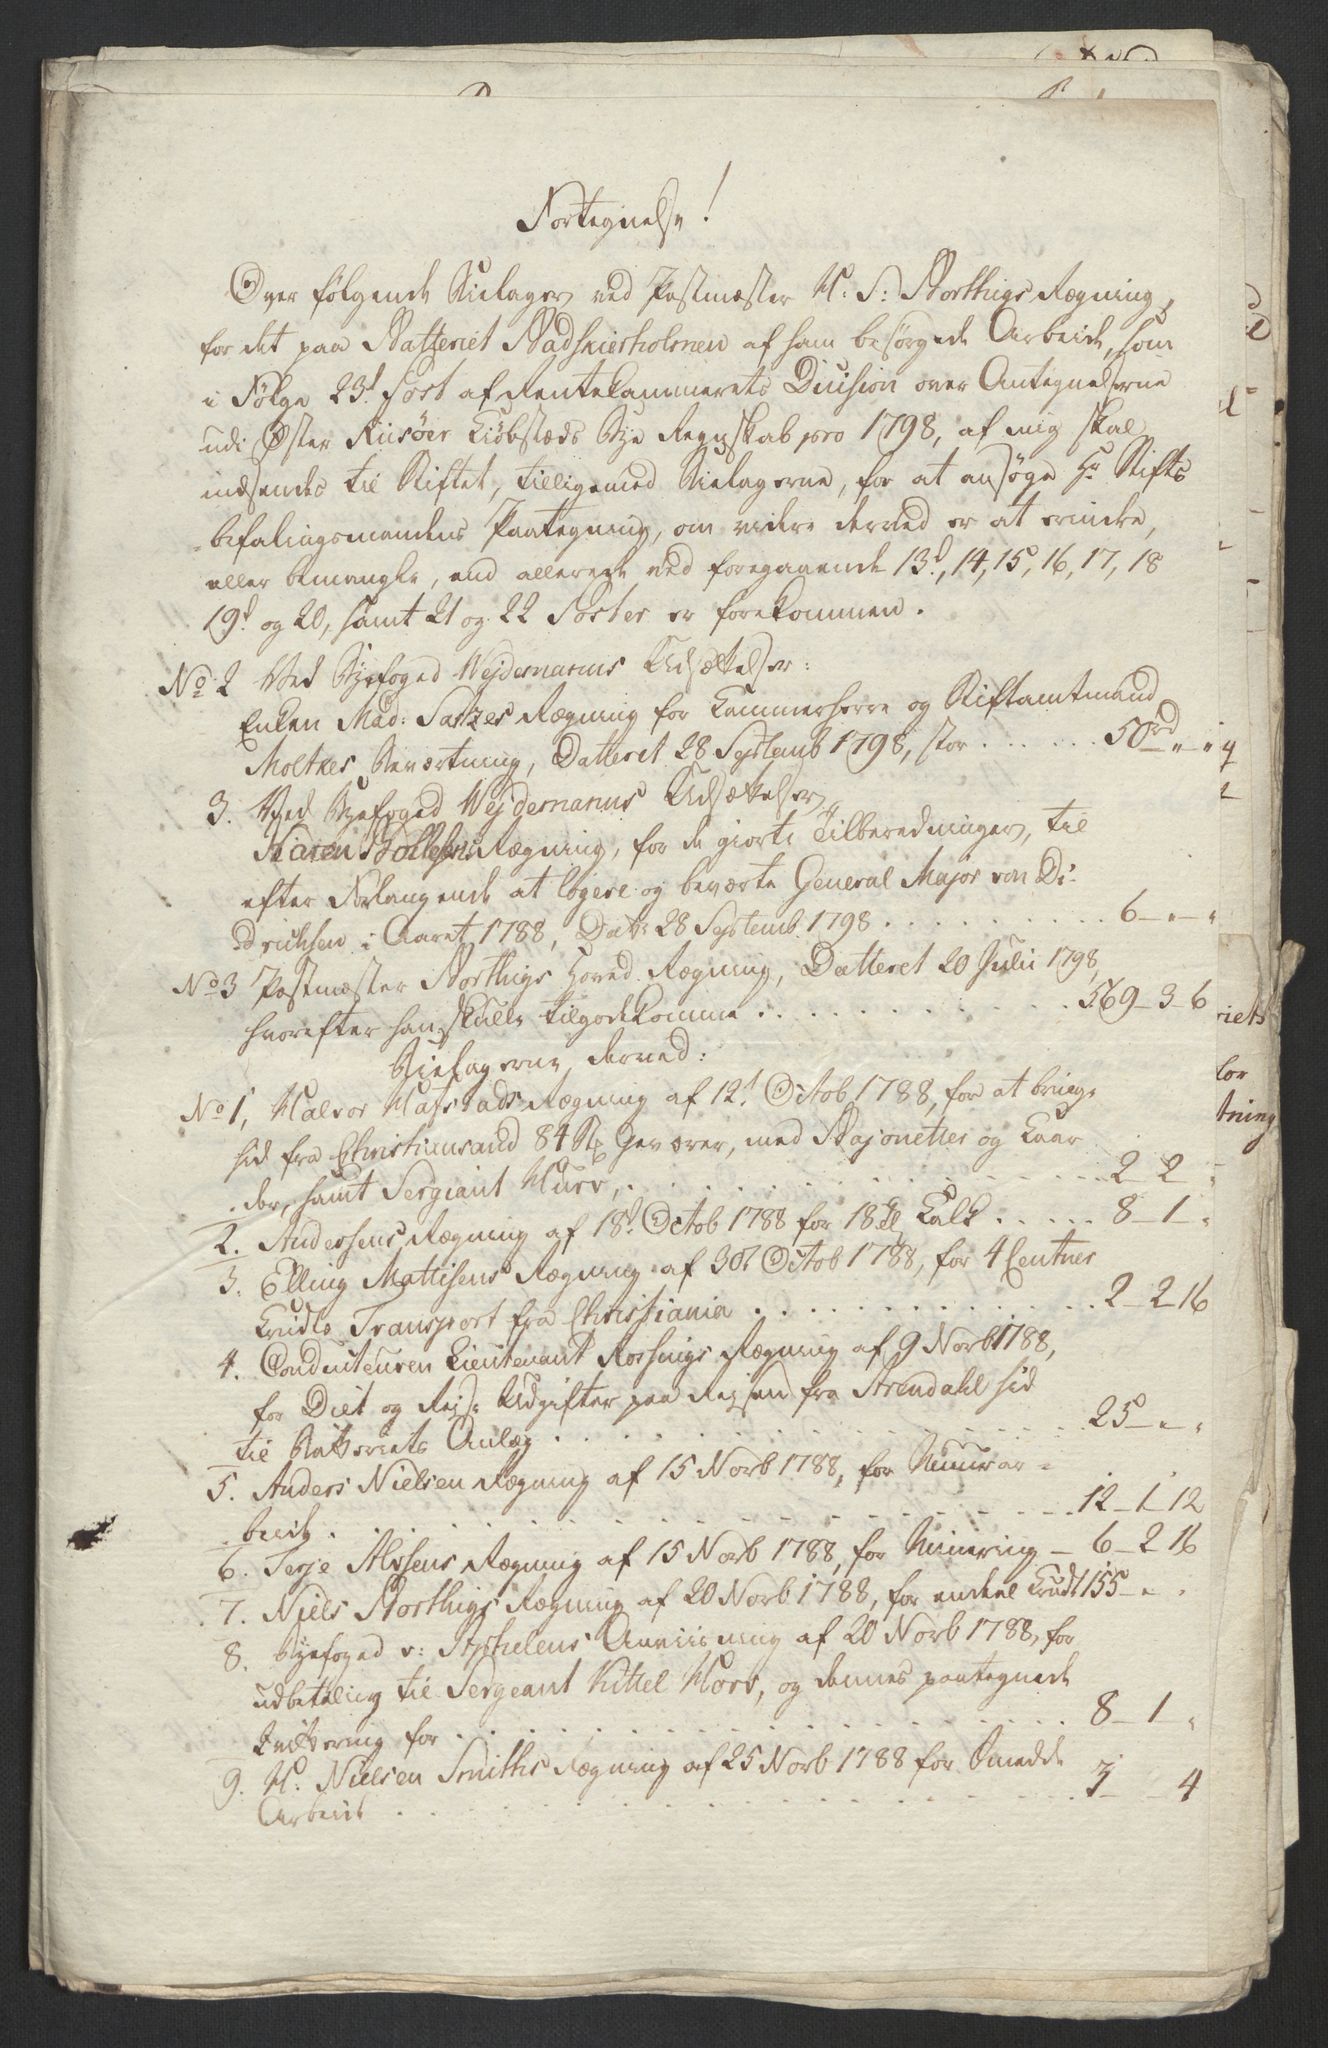 Fortegnelse!
Over følgende Bielager ved Postmester H: S: Northigs Regning,
for det paa Batteriet Stadskiersholmen af ham besørgede Arbeide, som
i Følge 23d Post af Rentekammerets Decision over Antegnelserne
udi Øster Riisöer Kiöbstæds Bye Regnskab pro 1798, af mig skal
indsendes til Stiftet, tilligemed Bielagerne, for at ansøge Hr Stifts
befalingsmandens Paategning, om videre derved er at erindre,
eller bemangle, end allerede ved foregaaende 13d, 14, 15, 16, 17, 18
19d og 20, samt 21 og 22 Poster er forekommen.
No 2 Ved Byefoged Wejdemanns Udsættelser:
Enken Mad: Regning for Kammerherre og Stiftamtmand
Moltkes Beværtning, Datteret 28 Septemb 1798, stor . . . . . 50rd " "
3. Ved Byefoged Wejdemanns Udsættelser,
Karen Regning, for de giorte Tilberedninger, til
efter Forlangende at logere og beværte General Major von Di-
drichsen i Aaret 1788, Dat: 28 Septemb 1798 . . . . . . . . 6 - " - "
No 3 Postmester Northigs Hoved Regning, Datteret 20 Julii 1798,
hvorefter han skulle tilgodekomme . . . . . . . . . . 569 - 3 - 6
Bielagerne derved:
No 1, Halvor Hafstads Regning af 12t Octob 1788, for at bringe
hid fra Christiansand 84 St Geværer, med Bajonetter og Kaar
der, samt Sergiant Hurv, . . . . . . . . . . . . 2 - 2 "
2. Andersens Regning af 18d Octob 1788 for 18 Kalk . . . . . 8 - 1 - "
3. Elling Mattisens Regning af 30t Octob 1788, for 4 Centner
Kruds Transport fra Christiania . . . . . . . . . . . 2 - 2 16
4. Conducteuren Lieutenant Rossings Regning af 9 Novb 1788,
for Diet og Reise Udgifter paa Reisen fra Arendahl hid
til Batteriets Anlæg . . . . . . . . . . . . . . 25 - " - "
5. Anders Nielsen Regning af 15 Novb 1788, for Muurar-
beide . . . . . . . . . . . . . . . . . . 12 - 1 - 12
6. Terje Alvsens Regning af 15 Novb 1788, for Minering - 6 - 2 16
7. Niels Northigs Regning af 20 Novb 1788, for endeel Krudt 155 - " "
8. Byefoged v: Anviisning af 20 Novb 1788, for
udbetaling til Sergeant Kittel Horv, og dennes paategnede
Qvittering for . . . . . . . . . . . . . . . . 8 - 1 "
9. H: Nielsen Smiths Regning af 25 Novb 1788 for Smedde
Arbeide . . . . . . . . . . . . . . . . . . 3 - - 4